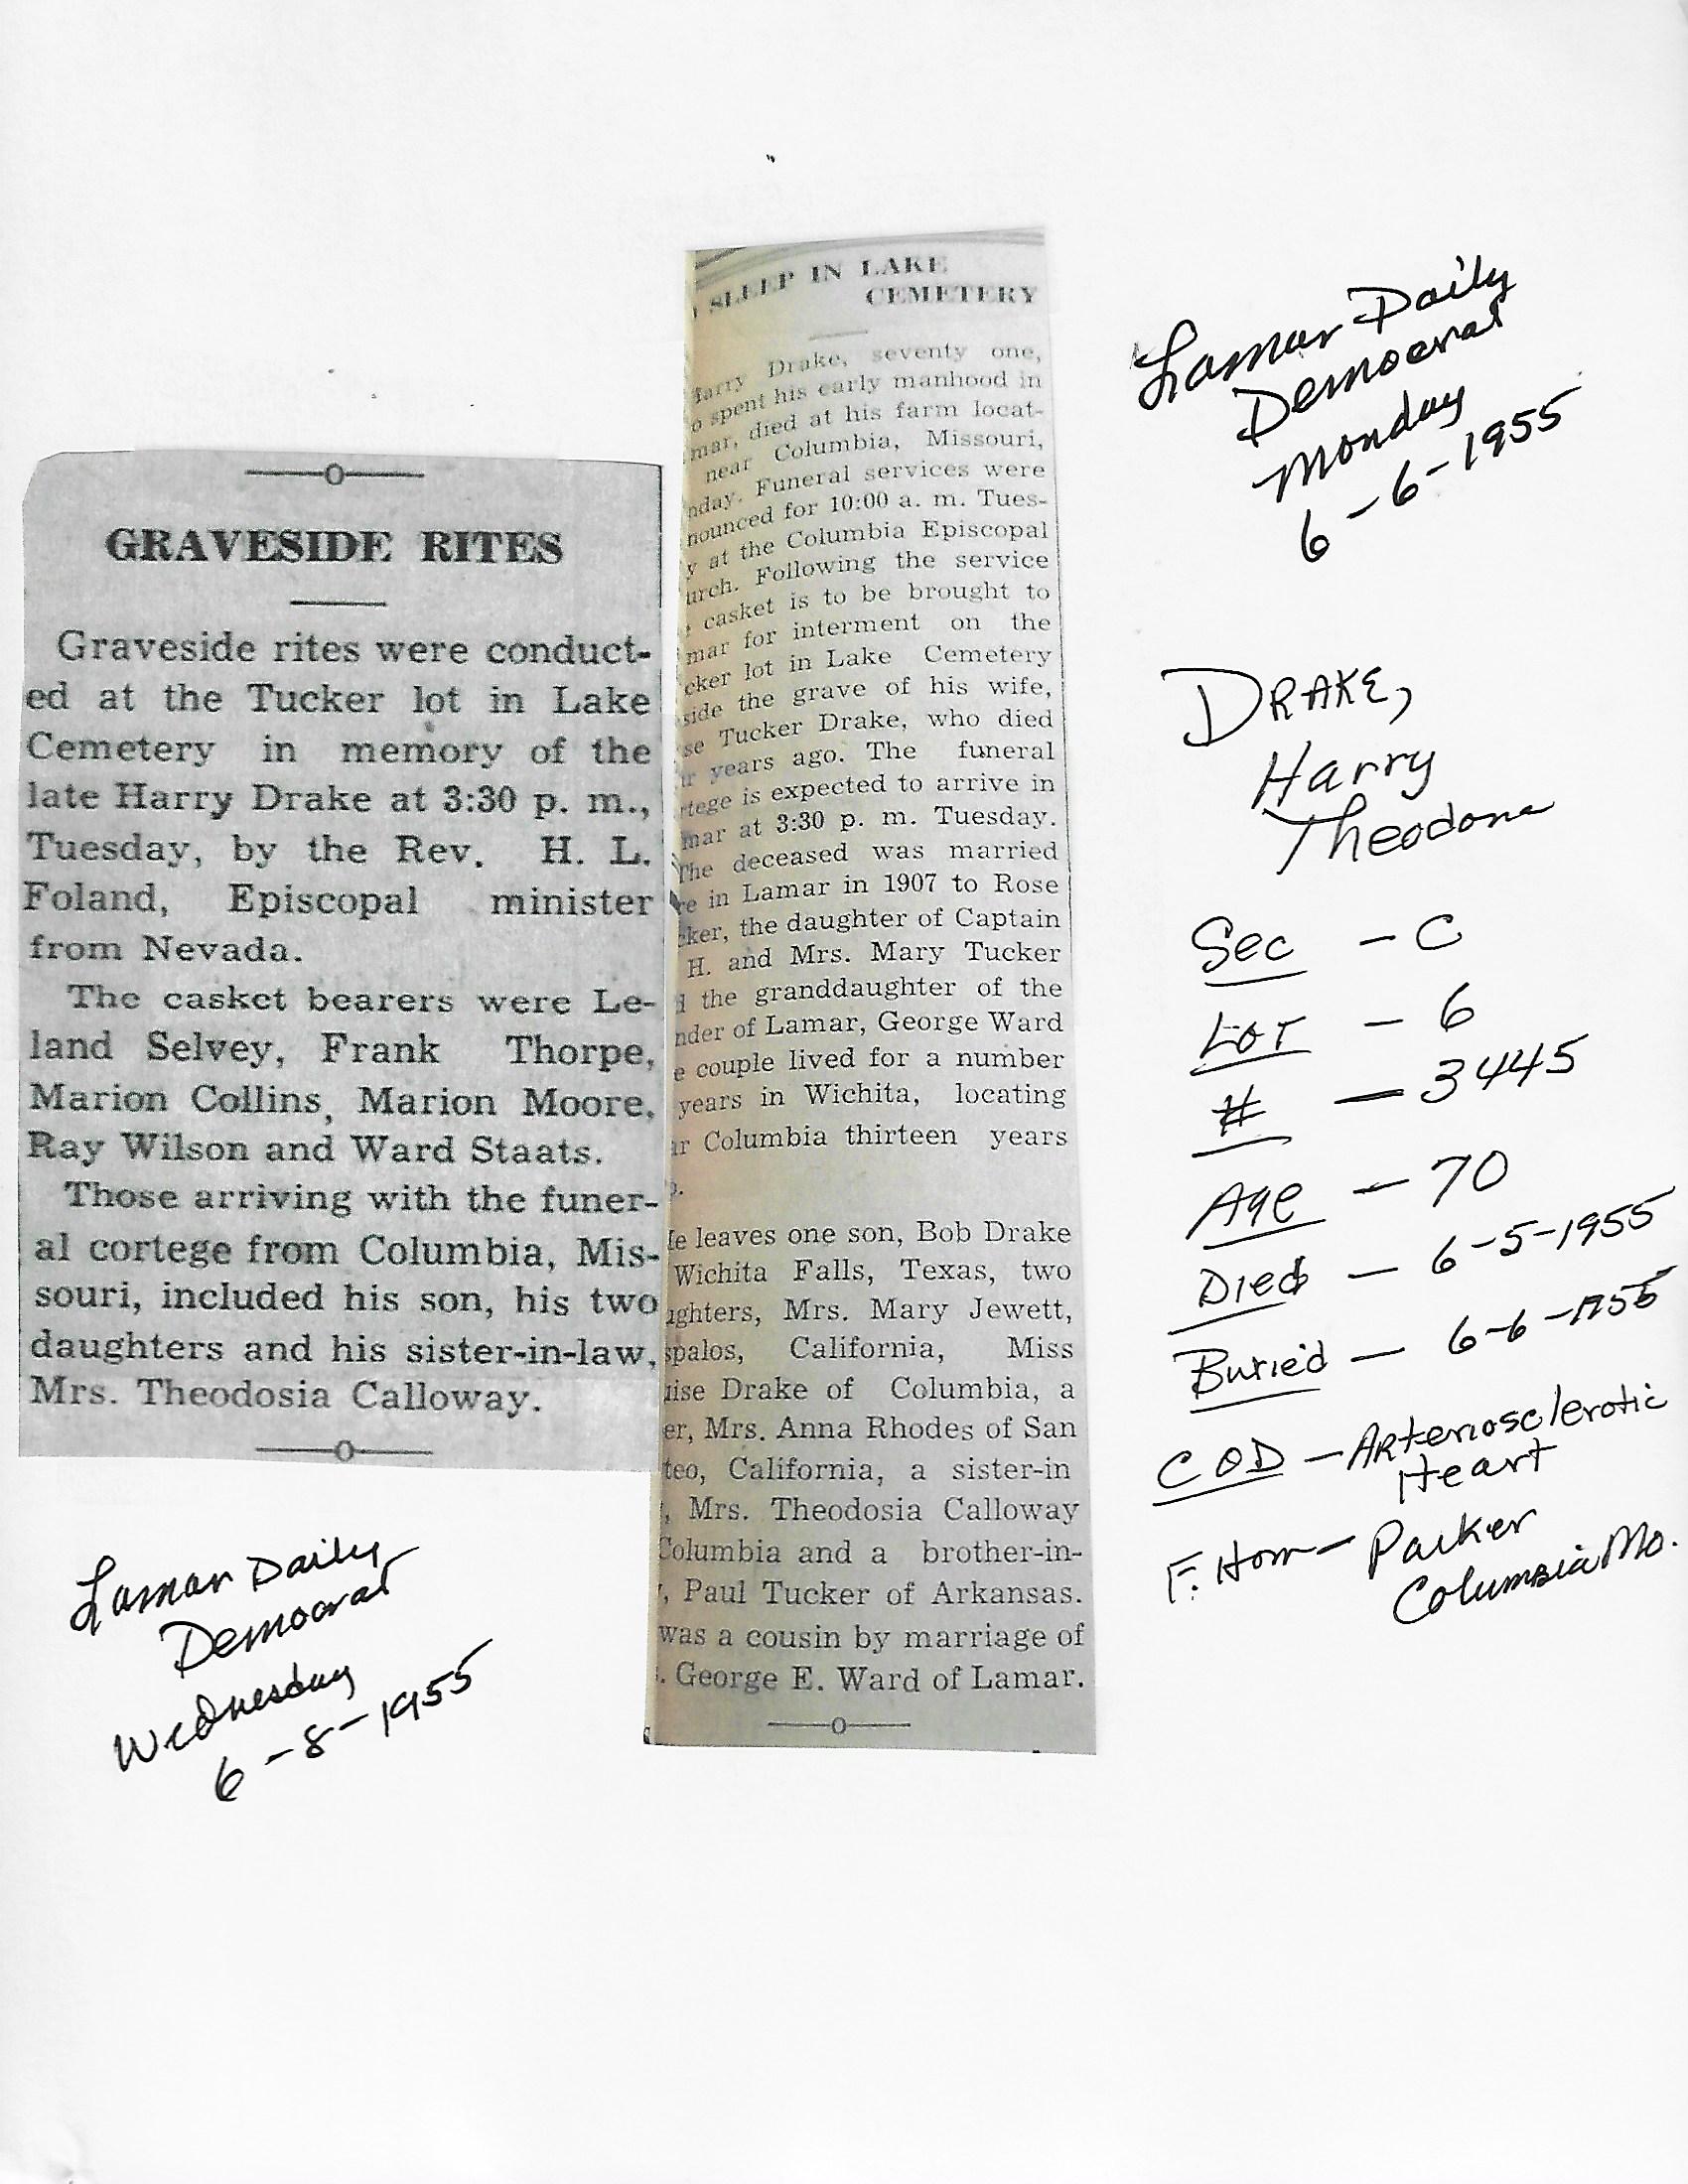 GRAVESIDE RITES
Graveside rites were conduct-
ed at the Tucker lot in Lake
Cemetery in memory of the
late Harry Drake at 3:30 p. m.,
Tuesday, by the Rev. H. L.
Foland, Episcopal minister
from Nevada.
The casket bearers were Le-
land Selvey, Frank Thorpe,
Marion Collins, Marion Moore,
Ray Wilson and Ward Staats.
Those arriving with the funer-
al cortege from Columbia, Mis-
souri, included his son, his two
daughters and his sister-in-law,
Mrs. Theodosia Calloway.
Lamar Daily
Democrat
Wednesday
6-8-1955
SLEEP IN LAKE
CEMETERY
Harry Drake, seventy one,
o spent his early manhood in
mar, died at his farm locat-
near Columbia, Missouri,
nday. Funeral services were
nounced for 10:00 a. m. Tues-
y at the Columbia Episcopal
urch. Following the service
casket is to be brought to
mar for interment on the
cker lot in Lake Cemetery
side the grave of his wife,
se Tucker Drake, who died
ur years ago. The funeral
rtege is expected to arrive in
mar at 3:30 p. m. Tuesday.
The deceased was married
re in Lamar in 1907 to Rose
cker, the daughter of Captain
H. and Mrs. Mary Tucker
d the granddaughter of the
nder of Lamar, George Ward
e couple lived for a number
years in Wichita, locating
ar Columbia thirteen years
o.
He leaves one son, Bob Drake
Wichita Falls, Texas, two
ughters, Mrs. Mary Jewett,
spalos, California, Miss
uise Drake of Columbia, a
er, Mrs. Anna Rhodes of San
teo, California, a sister-in
, Mrs. Theodosia Calloway
Columbia and a brother-in-
, Paul Tucker of Arkansas.
was a cousin by marriage of
. George E. Ward of Lamar.
Lamar Daily
Democrat
Monday
6-6-1955
DRAKE,
Harry
Theodore
Sec - C
Lot - 6
# - 3445
Age - 70
Died - 6-5-1955
Buried - 6-6-1955
COD - Arteriosclerotic
Heart
F. Hom - Parker
Columbia Mo.